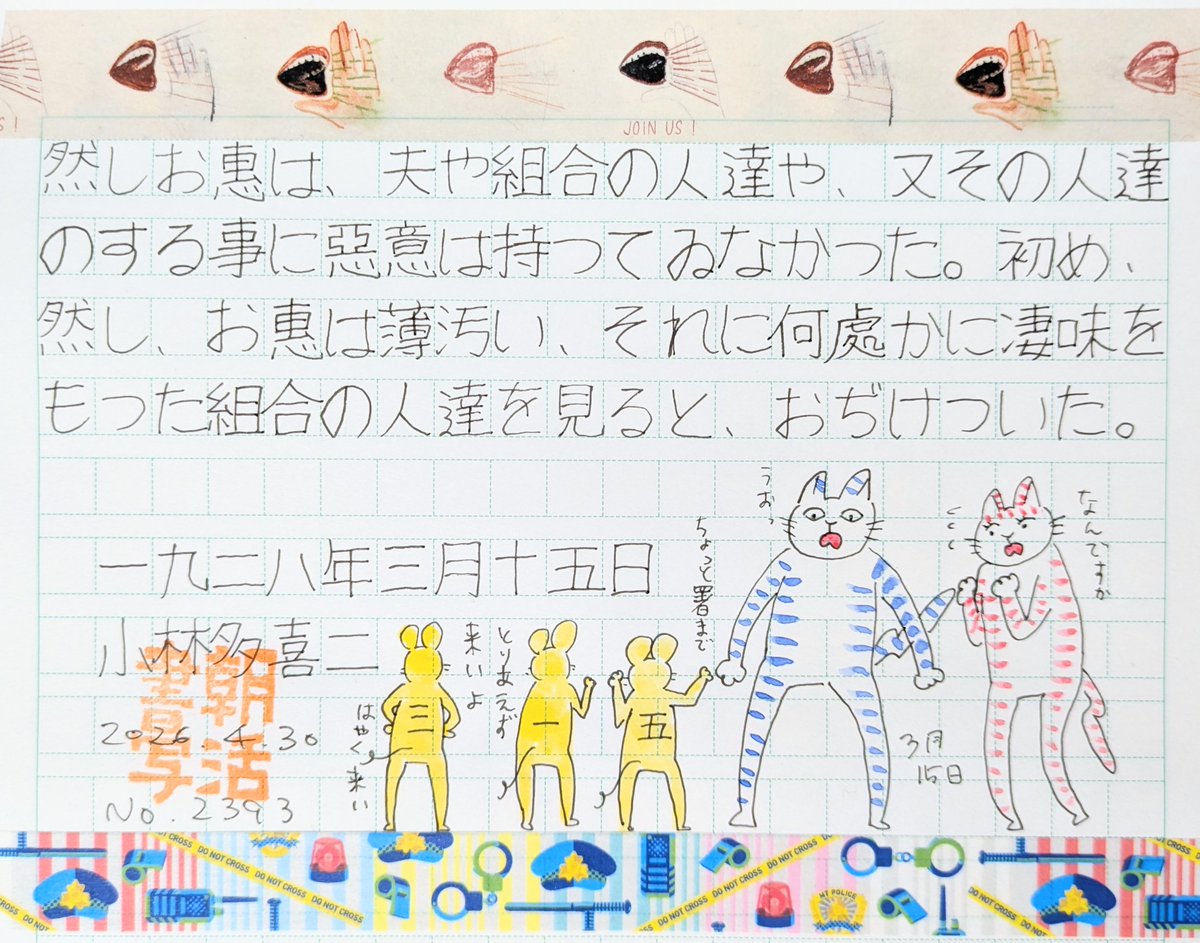 JOIN US !
S !
然しお惠は、夫や組合の人達や、又その人達
のする事に惡意は持つてゐなかつた。初め、
然し、お惠は薄汚い、それに何處かに凄味を
もつた組合の人達を見ると、おぢけついた。
一九二八年三月十五日
小林多喜二
朝活書写
2026.4.30
No.2393
はやく来い
来いよ
とりあえず
ちょっと署まで
うおっ
なんですか
三
一
五
3月
15日
DO NOT CROSS
DO NOT CROSS
DO NOT CROSS
DO NOT CROSS
DO NOT CROSS
MT POLICE
DO NOT CROSS